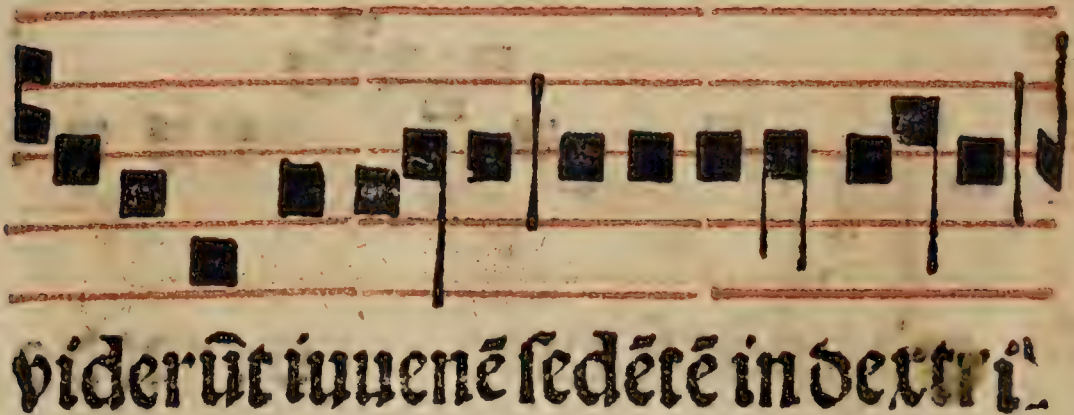 viderūt iuuenē ſedētē in dextri⸗